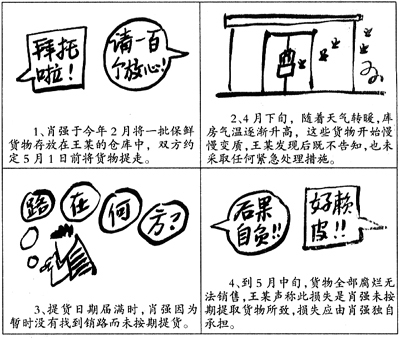 拜托
啦！
请一百
个放心！
1、肖强于今年2月将一批保鲜
货物存放在王某的仓库中，双方约
定5月1日前将货物提走。
2、4月下旬，随着天气转暖，库
房气温逐渐升高，这些货物开始慢
慢变质，王某发现后既不告知，也未
采取任何紧急处理措施。
路在何方？
3、提货日期届满时，肖强因为
暂时没有找到销路而未按期提货。
后果
自负！！
好赖
皮！！
4、到5月中旬，货物全部腐烂无
法销售，王某声称此损失是肖强未按
期提取货物所致，损失应由肖强独自
承担。